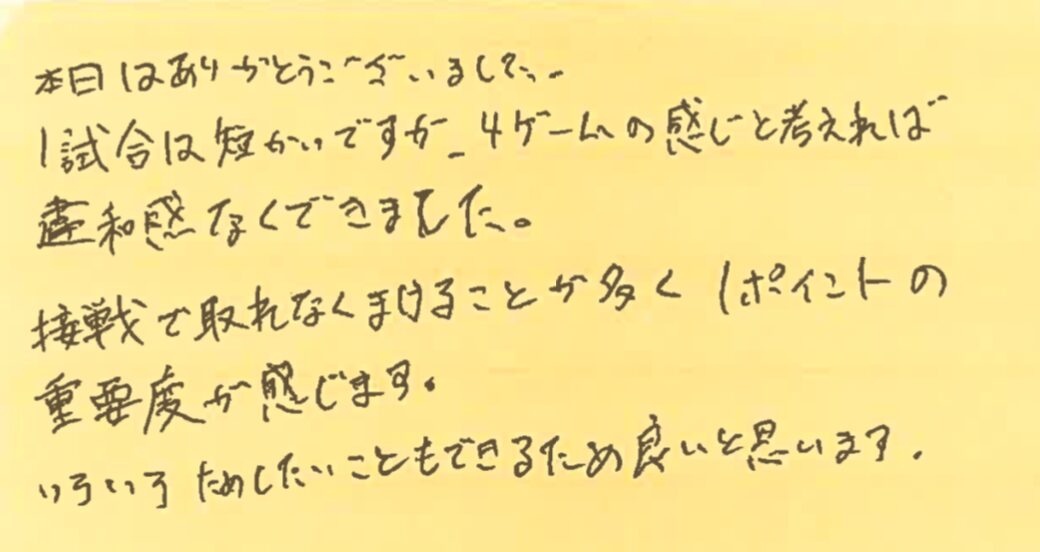 本日はありがとうございました。
1試合は短かいですが、4ゲームの感じと考えれば
違和感なくできました。
接戦で取れなくまけることが多く 1ポイントの
重要度が感じます。
いろいろ ためしたいこともできるため良いと思います.